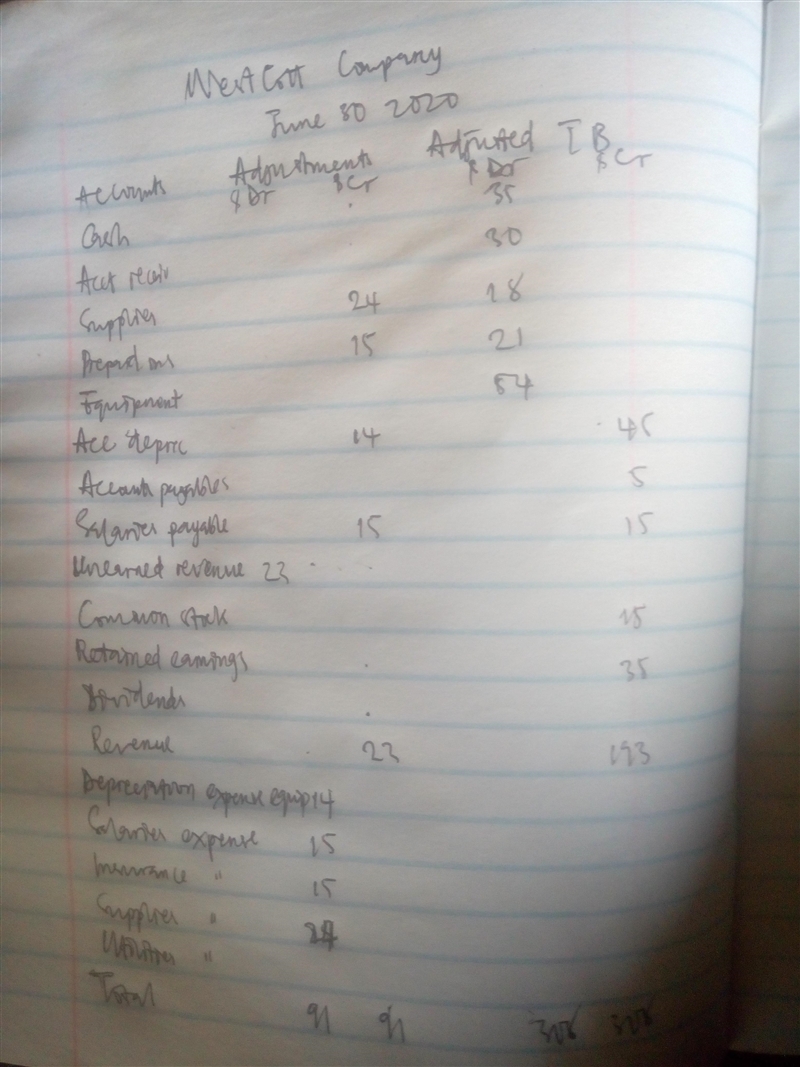 WestCott Company
June 30 2020
Accounts Adjustments Adjusted T B
$ Dr $ Cr $ Dr $ Cr
Cash 35
Acct receiv 30
Supplies 24 18
Prepaid ins 15 21
Equipment 54
Acc deprc 14 45
Accounts payables 5
Salaries payable 15 15
Unearned revenue 23
Common stock 15
Retained earnings 35
Dividends
Revenue 23 193
Depreciation expense equip 14
Salaries expense 15
Insurance " 15
Supplies "
Utilities "
Total 91 91 308 308